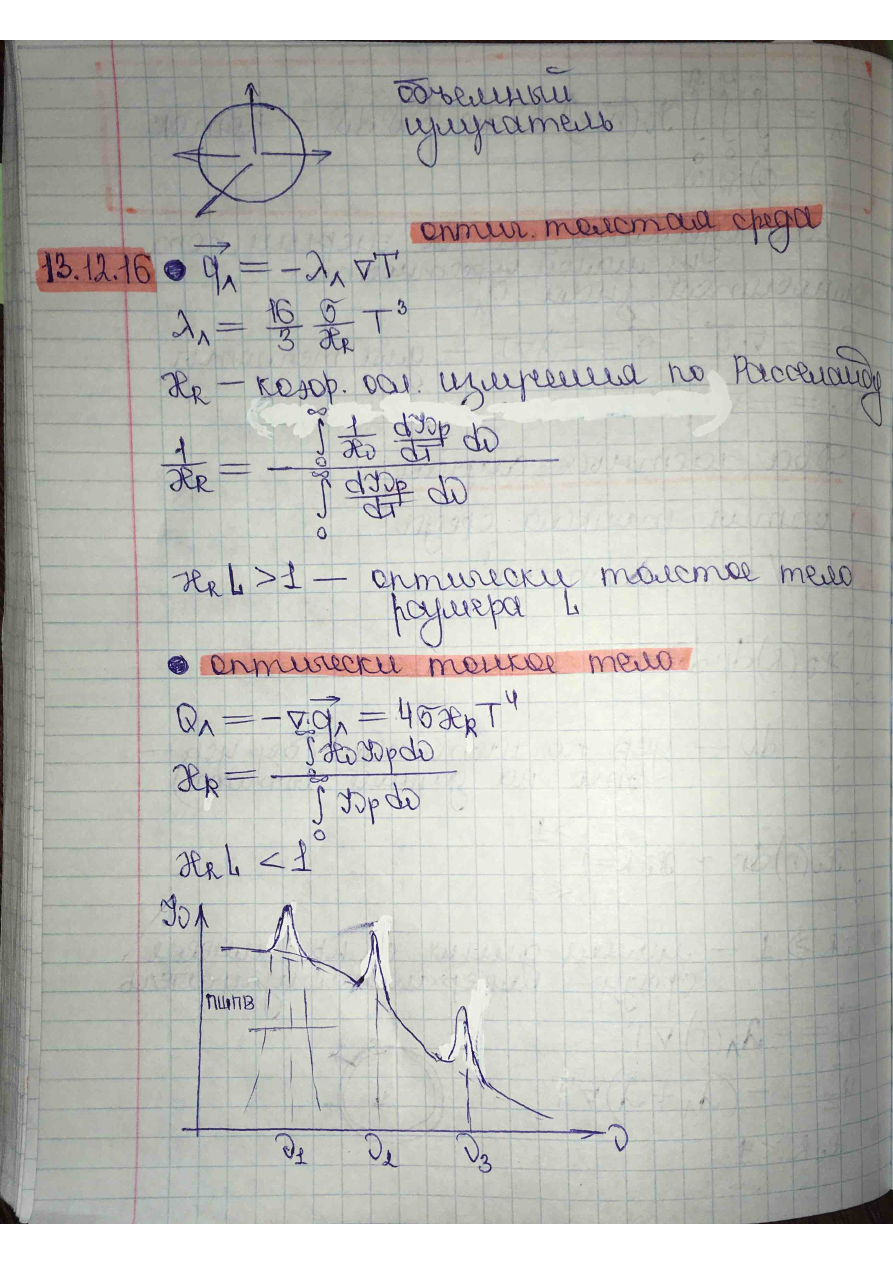 объемный
излучатель
оптич. толстая среда
13.12.16 • q⃗_Λ = −λ_Λ ∇T
λ_Λ = 16/3 σ/ϰ_R T³
ϰ_R — коэф. осл. излучения по Расселанду
1/ϰ_R = ∫₀^∞ 1/ϰ_ν dI_νp/dT dν / ∫₀^∞ dI_νp/dT dν
ϰ_R L > 1 — оптически толстое тело
размера L
• оптически тонкое тело
Q_Λ = −∇·q⃗_Λ = 4σϰ_R T⁴
ϰ_R = ∫₀^∞ ϰ_ν I_νp dν / ∫₀^∞ I_νp dν
ϰ_R L < 1
I_ν
ПШПВ
ν₁ ν₂ ν₃ ν